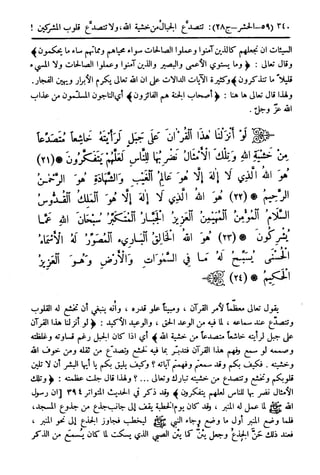 ٣٤٠ (٥٩ – الحشر – ج٢٨): تتصدّع الجبال من خشية الله، ولا تتصدّع قلوب المشركين !
السيئات ان نجعلهم كالذين آمنوا وعملوا الصالحات سواء محياهم ومماتهم ساء ما يحكمون﴾
وقال تعالى : ﴿وما يستوي الأعمى والبصير والذين آمنوا وعملوا الصالحات ولا المسيء
قليلاً ما تتذكرون﴾ وكثيرة الآيات الدالات على ان الله تعالى يكرم الأبرار ويهين الفجار.
ولهذا قال تعالى ها هنا : ﴿أصحاب الجنة هم الفائزون﴾ أي الناجون المسلّمون من عذاب
الله عزّ وجلّ.
لَوْ أَنزَلْنَا هَٰذَا الْقُرْآنَ عَلَىٰ جَبَلٍ لَّرَأَيْتَهُ خَاشِعًا مُّتَصَدِّعًا
مِّنْ خَشْيَةِ اللَّهِ وَتِلْكَ الْأَمْثَالُ نَضْرِبُهَا لِلنَّاسِ لَعَلَّهُمْ يَتَفَكَّرُونَ * (٢١)
هُوَ اللَّهُ الَّذِي لَا إِلَٰهَ إِلَّا هُوَ عَالِمُ الْغَيْبِ وَالشَّهَادَةِ هُوَ الرَّحْمَٰنُ
الرَّحِيمُ * (٢٢) هُوَ اللَّهُ الَّذِي لَا إِلَٰهَ إِلَّا هُوَ الْمَلِكُ الْقُدُّوسُ
السَّلَامُ الْمُؤْمِنُ الْمُهَيْمِنُ الْعَزِيزُ الْجَبَّارُ الْمُتَكَبِّرُ سُبْحَانَ اللَّهِ عَمَّا
يُشْرِكُونَ * (٢٣) هُوَ اللَّهُ الْخَالِقُ الْبَارِئُ الْمُصَوِّرُ لَهُ الْأَسْمَاءُ
الْحُسْنَىٰ يُسَبِّحُ لَهُ مَا فِي السَّمَاوَاتِ وَالْأَرْضِ وَهُوَ الْعَزِيزُ
الْحَكِيمُ * (٢٤)
يقول تعالى معظّماً لأمر القرآن ، ومبيناً علو قدره ، وأنه ينبغي أن تخشع له القلوب
وتتصدع عند سماعه ، لما فيه من الوعد الحق ، والوعيد الأكيد : ﴿ لو أنزلنا هذا القرآن
على جبل لرأيته خاشعاً متصدعاً من خشية الله ﴾ أي اذا كان الجبل رغم قساوته وغلظته
وصممه لو سمع وفهم هذا القرآن فتدبر بما فيه لخشع وتصدع من ثقله ومن خوف الله
وخشيته . فكيف بكم وقد سمعتم وفهمتم آياته ؟ وكيف يليق بكم يا أيها البشر أن لا تلين
قلوبكم وتخشع وتتصدع من خشيته تبارك وتعالى ... ؟ ولهذا قال جلت عظمته : ﴿ وتلك
الأمثال نضربها للناس لعلهم يتفكرون ﴾ وقد ذكر في الحديث المتواتر ٣٩٤ [ان رسول
الله ﷺ لما عمل له المنبر ، وقد كان يوم الخطبة يقف إلى جانب جذع من جذوع المسجد،
فلما وضع المنبر أول ما وضع وجاء النبي ﷺ ليخطب فجاوز الجذع إلى نحو المنبر ،
فعند ذلك حنّ الجذع وجعل يئنّ كما يئن الصبي الذي يسكت لما كان يسمع من الذكر